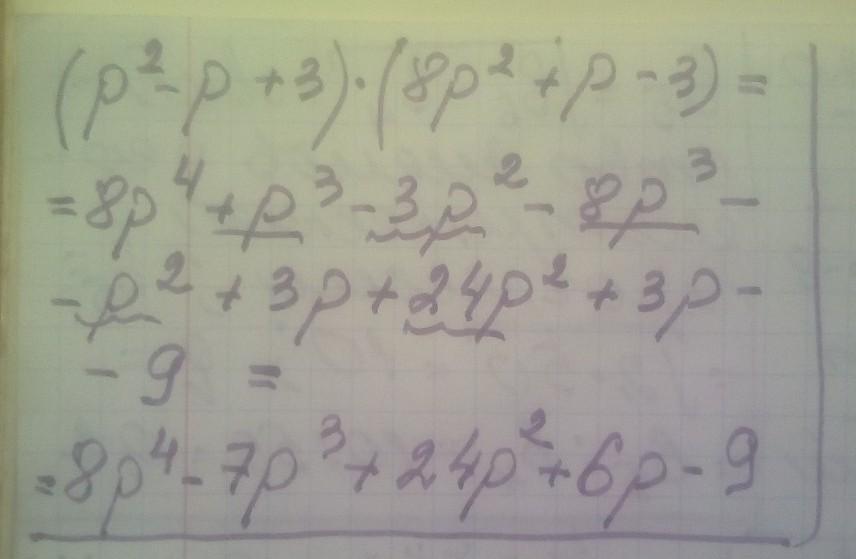 (p² - p + 3) · (8p² + p - 3) =
= 8p⁴ + p³ - 3p² - 8p³ -
- p² + 3p + 24p² + 3p -
- 9 =
= 8p⁴ - 7p³ + 24p² + 6p - 9